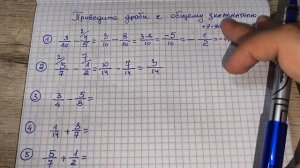 Приведите дроби к общему знаменателю
① 3/10 - 4/5 = 3/10 - 8/10 = 3-8/10 = -5/10 = - 1/2 =
② 5/7 - 1/2 = 10/14 - 7/14 = 3/14
③ 3/4 - 5/8 =
④ 1/14 + 3/7 =
⑤ 5/7 + 1/2 =